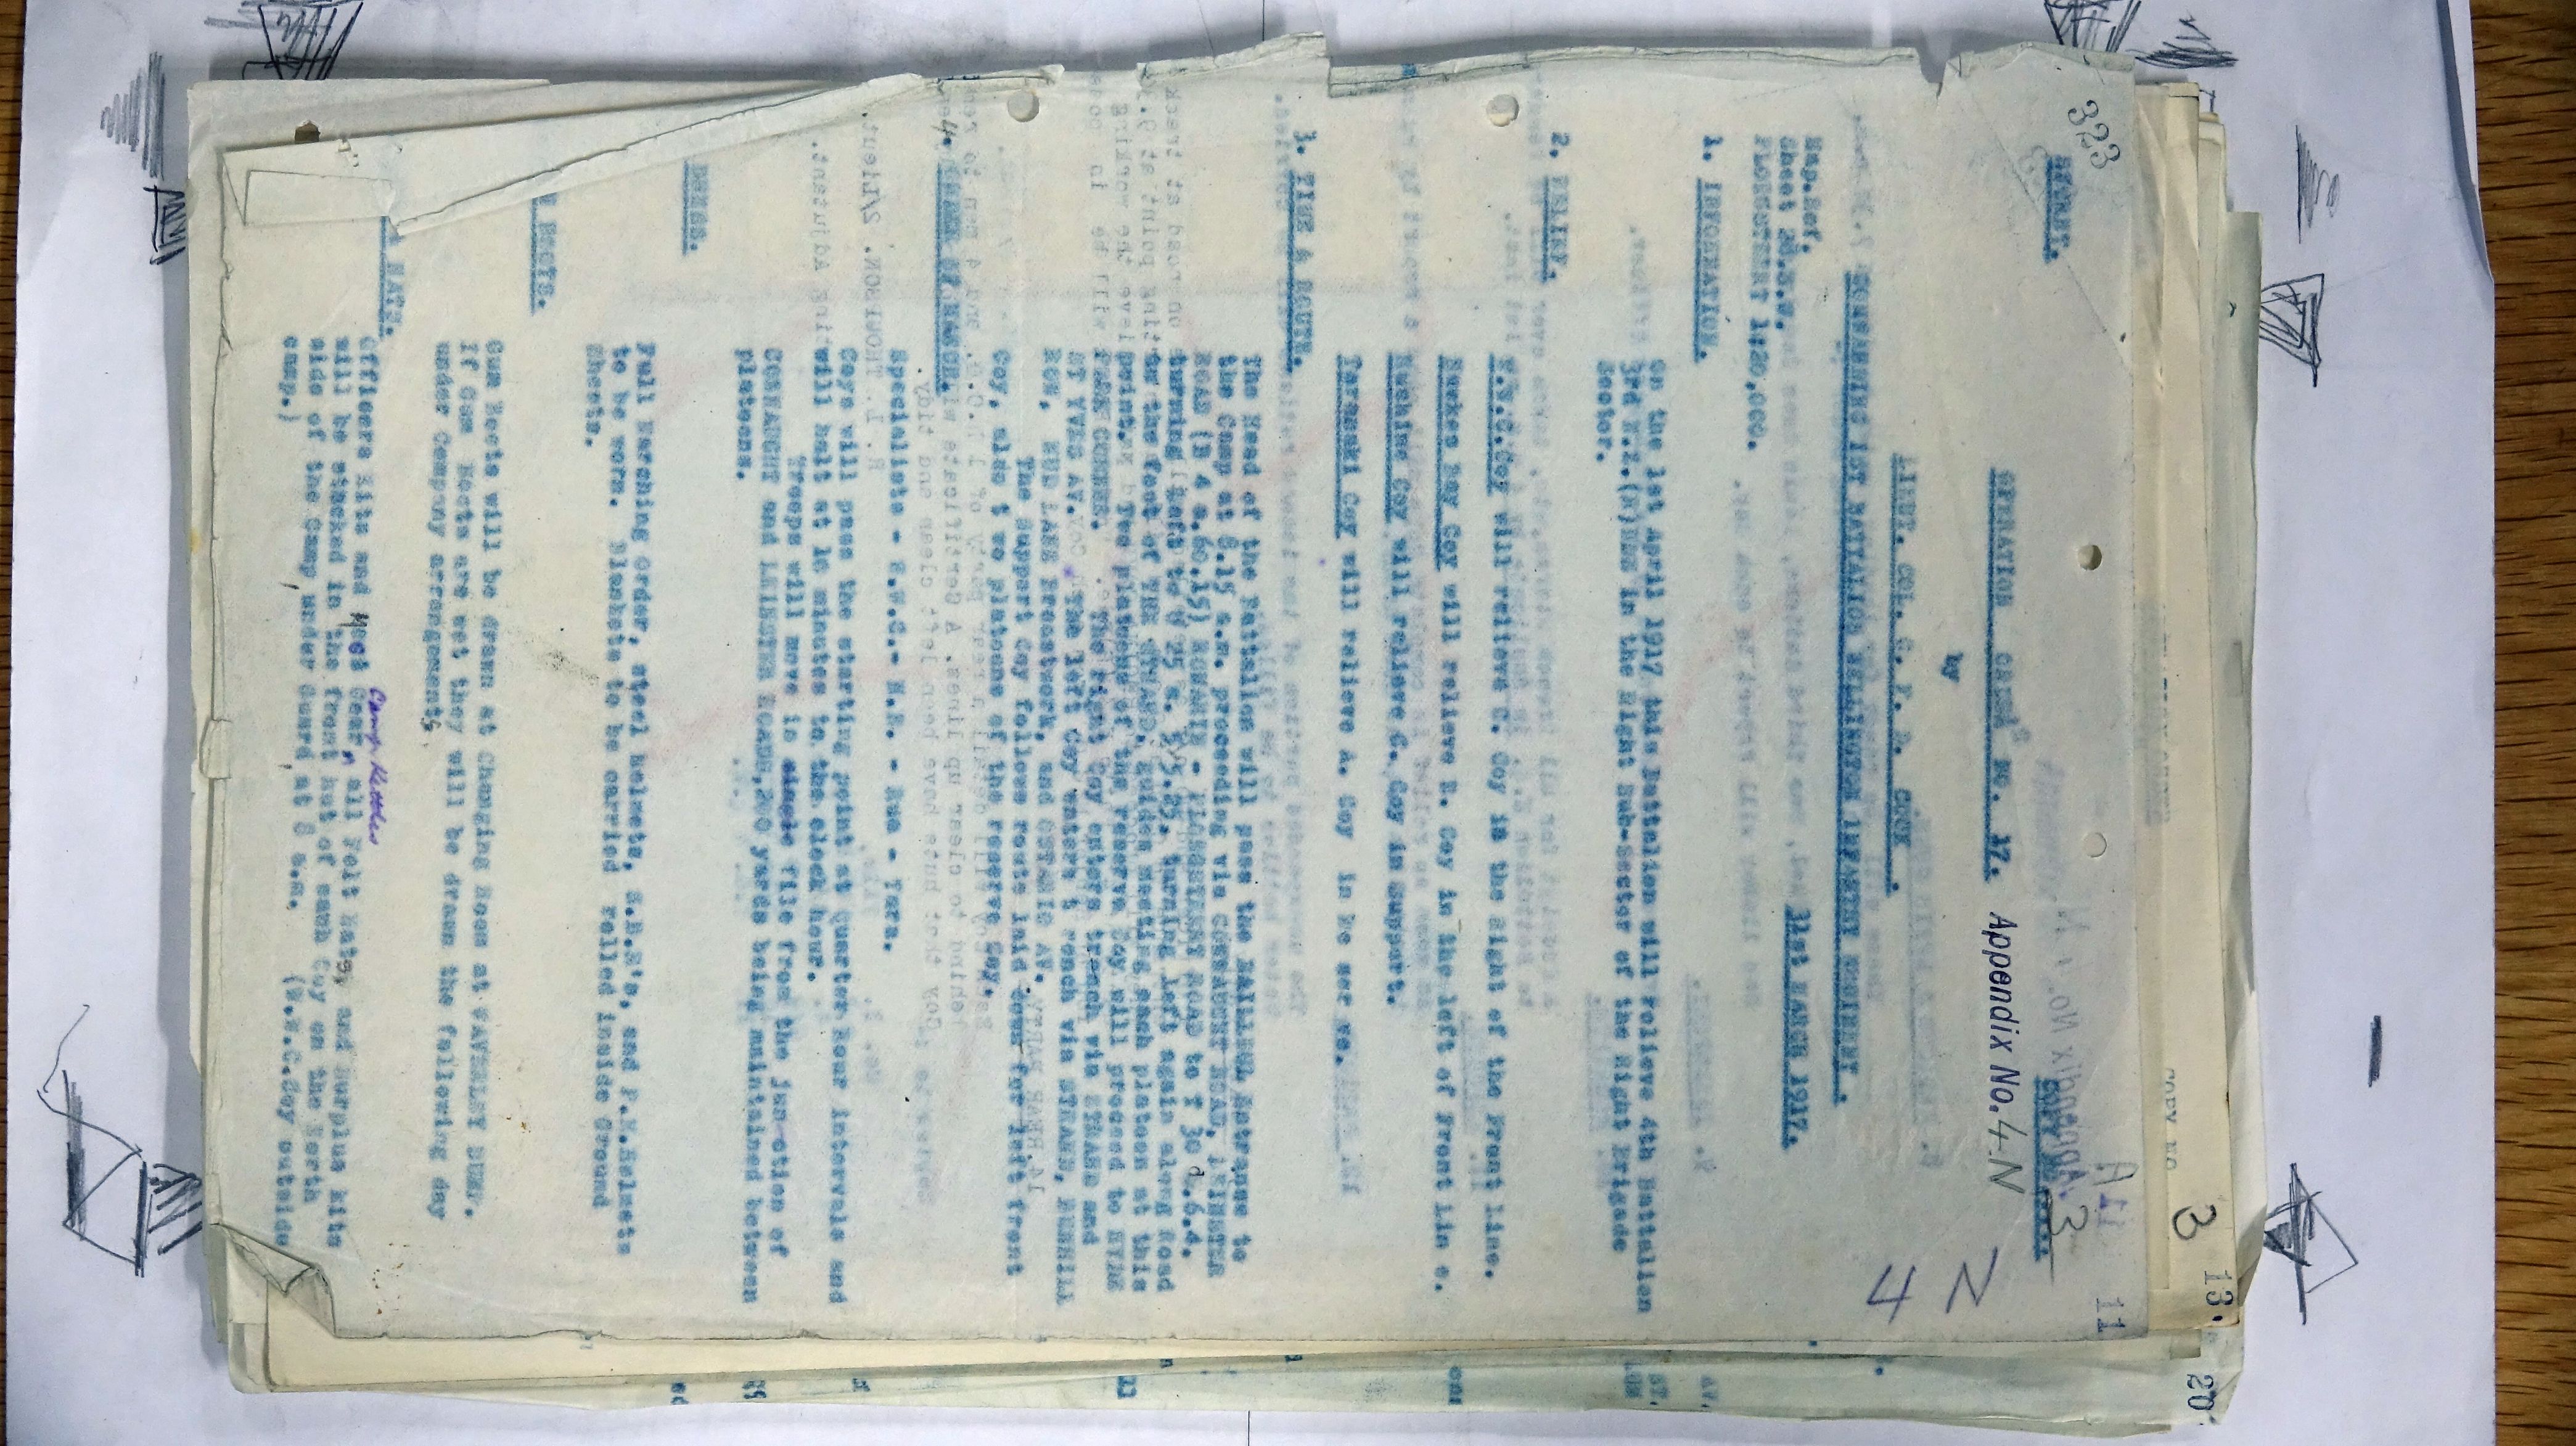 323
11
SECRET.
COPY No. 3
OPERATION ORDER No. 17. Appendix No. 4-N
4 N
by
LIEUT. COL. C. F. D. COOK .
COMMANDING 1ST BATTALION WELLINGTON INFANTRY REGIMENT .
Map.Ref.
Sheet 28.S.W.
PLOEGSTEERT 1:20,000.
31st MARCH 1917.
1. INFORMATION.
On the 1st April 1917 this Battalion will relieve 4th Battalion
3rd N.Z.(R)BDE in the Right Sub-Sector of the Right Brigade
Sector.
2. RELIEF.
W.W.C.Coy will relieve C. Coy in the Right of the Front Line.
Hawkes Bay Coy will relieve B. Coy in the left of Front Lin e.
Ruahine Coy will relieve D. Coy in Support.
Taranaki Coy will relieve A. Coy in Re ser ve.
3. TIME & ROUTE.
The Head of the Battalion will pass the BAILLEUL Entrance to
the Camp at 8.15 a.m. proceeding via CONNAUGHT ROAD, LEINSTER
ROAD (B 4 a.60.15) ROMARIN - PLOEGSTEERT ROAD to T 30 d.6.4.
turning left to U 25 a. 35.25. turning left again along Road
on the foot of THE STRAND, guides meeting each platoon at this
point. Two platoons of the reserve Coy will proceed to HYDE
PARK CORNER. The right Coy enters trench via STRAND and
ST YVES AV. The left Coy enters t rench via STRAND, BUNHILL
ROW, RED LAKE Breastwork, and ONTARIO AV.
The Support Coy follows route laid down for left front
Coy, also t wo platoons of the reserve Coy.
4. ORDER OF MARCH.
Specialists - W.W.C.- H.B. - Rua - Tara.
Coys will pass the starting point at Quarter Hour intervals and
will halt at 10 minutes to the clock hour.
Troops will move in single file from the jun ction of
CONNAUGHT and LEINSTER ROADS, 200 yards being maintained between
platoons.
DRESS.
Full Marching Order, steel Helmets, S.B.R's, and P.H.Helmets
to be worn. Blankets to be carried rolled inside Ground
Sheets.
BOOTS.
Gum Boots will be drawn at Changing Room at WAVERLEY DUMP.
If Gum Boots are wet they will be drawn the following day
under Company arrangements,
HATS.
Camp Kettles
Officers Kits and Mess Gear, all Felt Hats, and Surplus kits
will be stacked in the front hut of each Coy on the North
side of the Camp, under Guard, at 8 a.m. (W.W.C.Coy outside
camp.)
COPY NO
3
13.
20